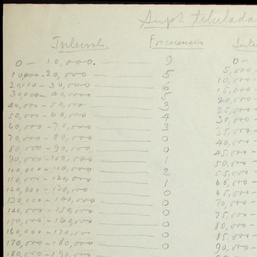 Interval Frequencies
0 - 10,000. 9 0 -
10,000 - 20,000 5 5,000
20,000 - 30,000 6 10,000
30,000 40,000 5 15,000
40,000 - 50,000 3 20,000
50,000 - 60,000 4 25,000
60,000 - 70,000 3 30,000
70,000 - 80,000 0 35,000
80,000 - 90,000 0 40,000
90,000 - 100,000 1 45,000
100,000 - 110,000 2 50,000
110,000 - 120,000 1 55,000
120,000 - 130,000 0 65,000
130,000 - 140,000 0 70,000
140,000 - 150,000 0 75,000
150,000 - 160,000 0 80,000
160,000 - 170,000 0 85,000
170,000 - 180,000 0 90,000
180,000 - 190,000